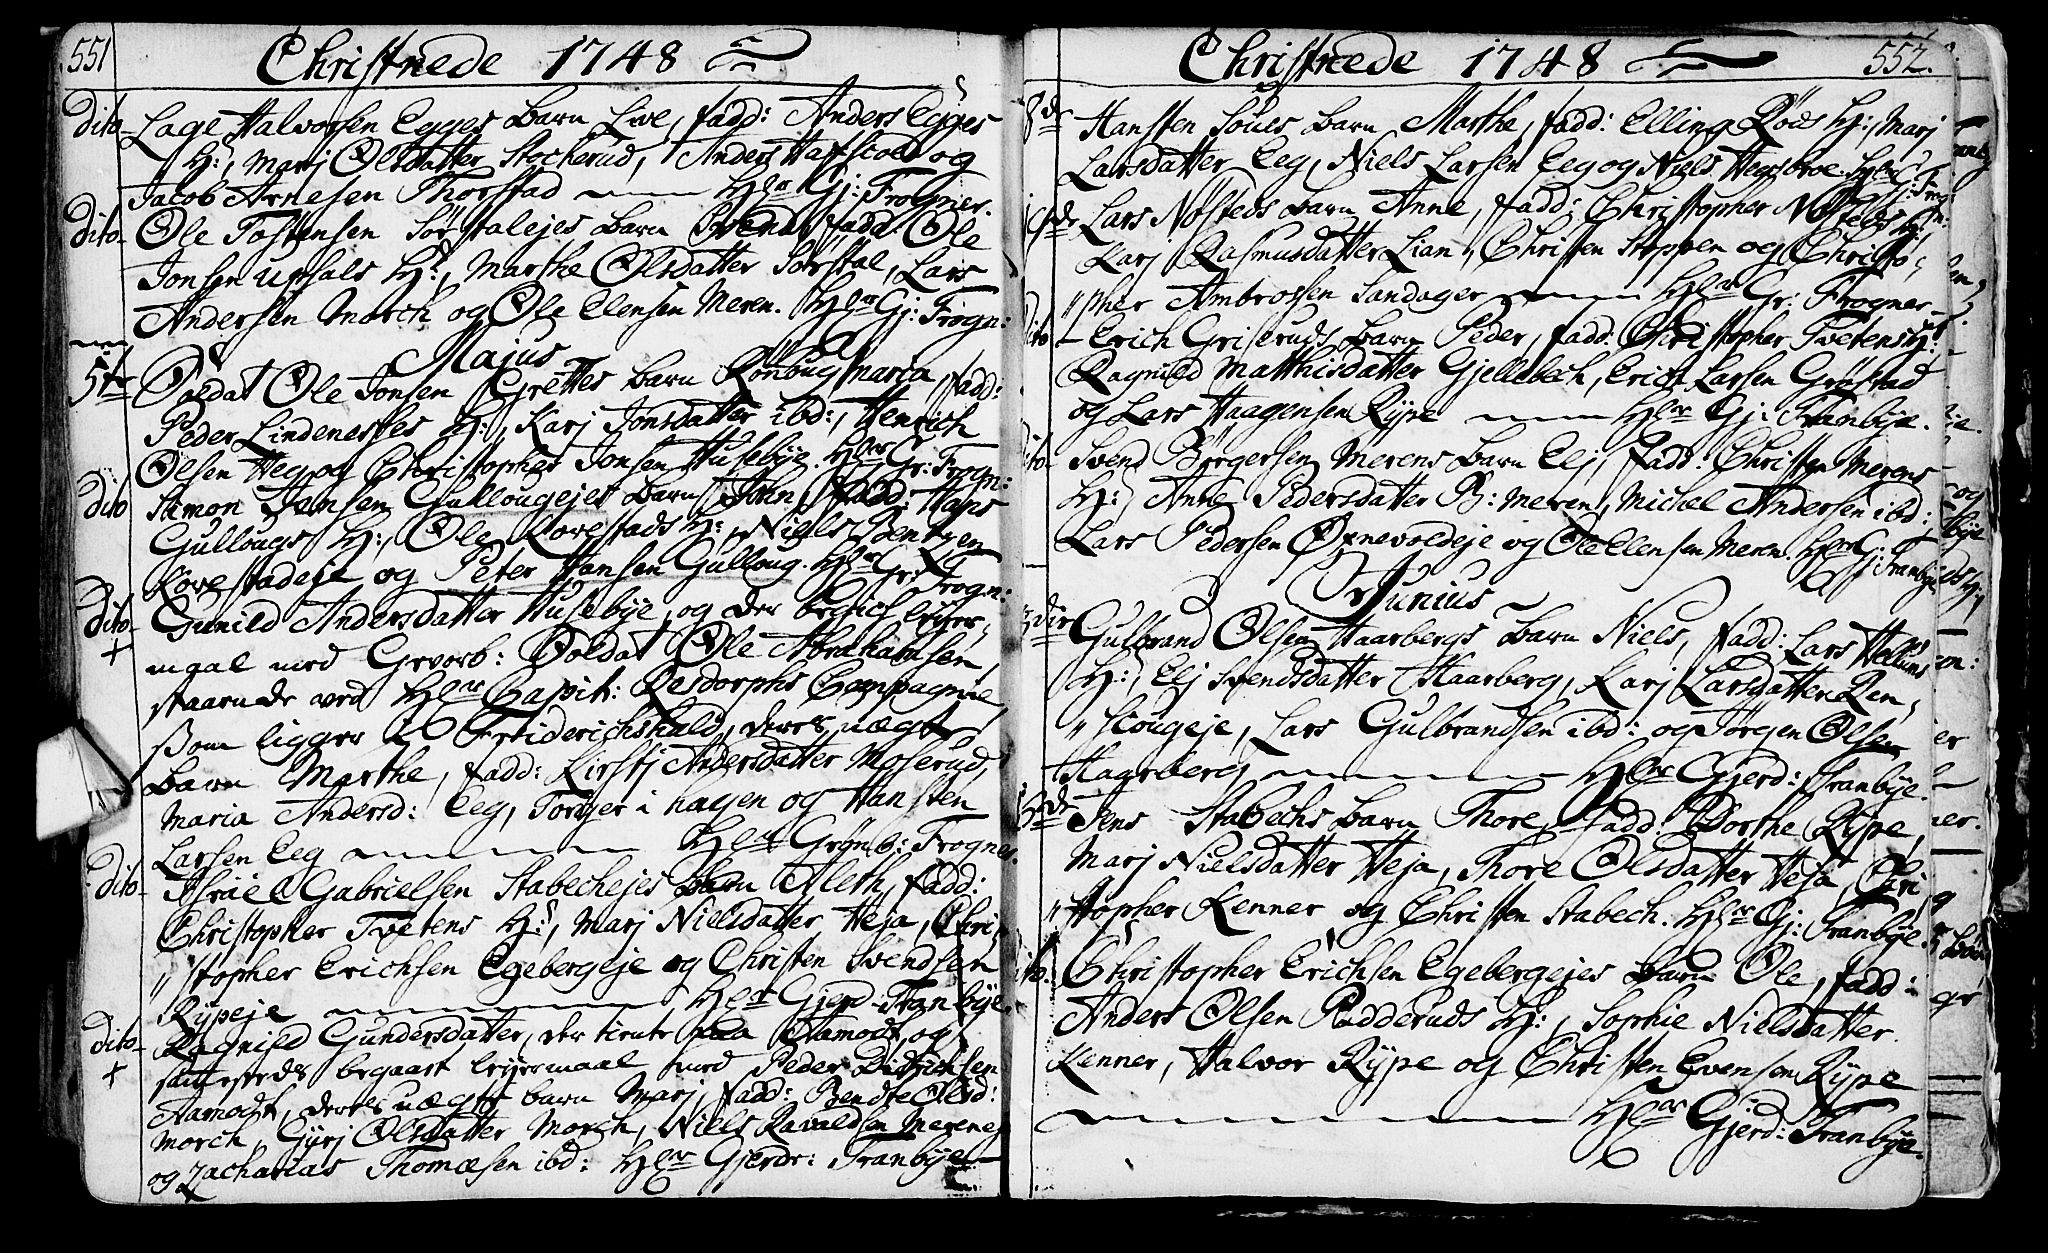 551
Christnede 1748
dito Lage Halvorsen Egges barn Live, fadd: Anders Egges
H:, Marj Olsdatter Stocherud, Anders Hafscold og
Jacob Arnesen Thorstad — Hl. Gj: Frogner.
dito Ole Tostensen Sørstalejes barn fadd: Ole
Jonsen Upsals H:, Marthe Olsdatter Sørstal, Lars
Andersen Morch og Ole Elensen Meren. Hl. Gj: Frogn:
Majus
5te Soldat Ole Jonsen Grettes barn Rønoug Maria, fadd:
Peder Lindenesses H:, Karj Jonsdatter ibd:, Henrich
Olsen Heg og Christopher Jonsen Husebye. Hl. Gr: Frogn:
dito Simon Jensen Gullougejes barn John, fadd: Hans
Gullougs H:, Ole Kovestads H:, Niels Bentsen
Kovestadeje og Peter Hansen Gulloug. Hl. Gr: Frogn:
dito Gunild Andersdatter Husebye, og der begich lejer-
+ maal med Gevorb: Soldat Ole Abrahamsen,
staaende ved Hl. Capit: Resdorphs Compagnie,
som ligger i Friderichshald, deres uægte
barn Marthe, fadd: Kirstj Andersdatter Moserud,
Maria Andersd: Eeg, Torger i hagen og Hansten
Larsen Eeg — Hl. Grønb: Frogner.
dito Israel Gabrielsen Stabechejes barn Aleth, fadd:
Christopher Tvetens H:, Marj Nielsdatter Heja, Chri-
"stopher Erichsen Egebergeje og Christen Svendsen
Rypeje — Hl. Gjerd: Tranbye
dito Ragnild Gundersdatter, der tiente paa Aamodt, og
+ samesteds begaaet lejermaal med Peder Didrichsen
Aamodt, deres uægte barn Marj, fadd: Bendte Olsd:
Morch, Gurj Olsdatter Morch, Niels Ravaldsen Mereneje
og Zacharias Thomæsen ibd: Hl. Gjerdr: Tranbye
552.
Christnede 1748
8de Hansten Søues barn Marthe, fadd: Elling Røds H:, Marj
Larsdatter Eeg, Niels Larsen Eeg og Niels Hegsbroe. Hl. Gj: Frogn:
Lars Nøsteds barn Anne, fadd: Christopher Nøsteds H:,
Karj Rasmusdatter Lian, Christen Stoppen og Christo-
"pher Ambrossen Sandager — Hl. Gr: Frogner
dito Erich Griseruds barn Peder, fadd: Christopher Tvetens H:
Ragnild Matthisdatter Gjellebech, Erich Larsen Grøstad
og Lars Haagensen Rype — Hl. Gj: Tranbye.
dito Svend Børgersen Merens barn Elj, fadd: Christen Merens
H:, Anne Pedersdatter B: Meren, Michel Andersen ibd:,
Lars Pedersen Øvnevoldeje og Ole Elensen Meren. Hl. Gj: Tranbye
Junius
Gulbrand Olsen Haarbergs barn Niels, fadd: Lars Hellums
H:, Elj Svendsdatter Haarberg, Karj Larsdatter Ran-
"scougeje, Lars Gulbrandsen ibd: og Jørgen Olsen
Haarberg — Hl. Gjerd: Tranbye.
Jens Stabechs barn Thore, fadd: Dorthe Rype,
Marj Nielsdatter Heja, Thore Olsdatter Heja, Chri-
"stopher Kenner og Christen Stabech. Hl. Gj: Tranbye.
dito. Christopher Erichsen Egebergejes barn Ole, fadd:
Anders Olsen Padderuds H:, Sophie Nielsdatter
Kenner, Halvor Rype og Christen Evensen Rype
— Hl. Gjerd: Tranbye.